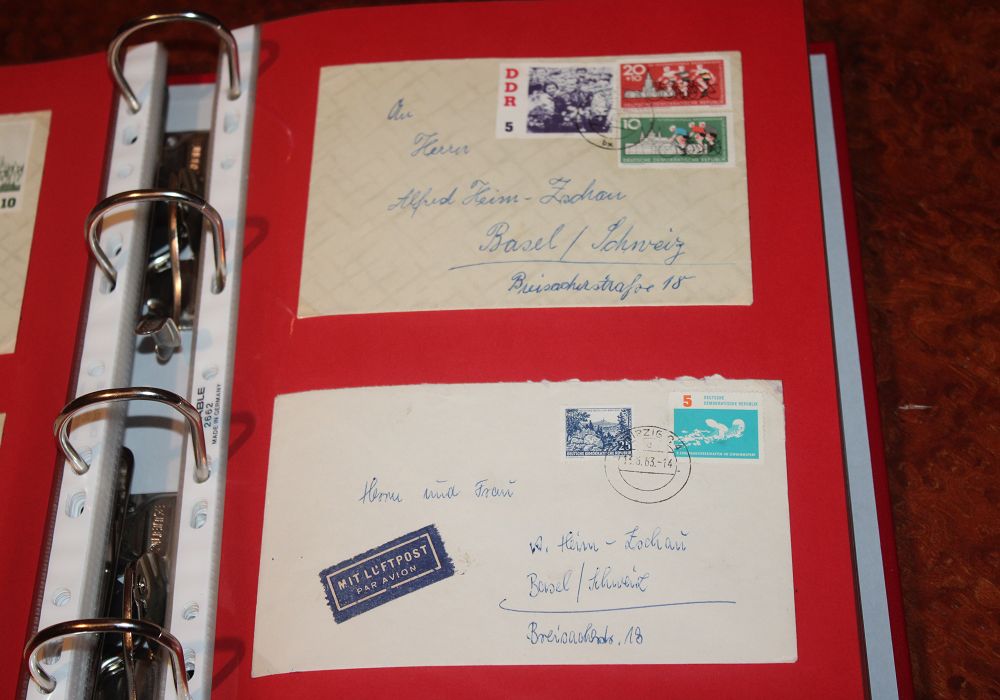 10
ABLE
2662
MADE IN GERMANY
DDR
5
20
+10
DEUTSCHE DEMOKRATISCHE REPUBLIK
10
DEUTSCHE DEMOKRATISCHE REPUBLIK
An
Herrn
Alfred Heim-Zschau
Basel / Schweiz
Breisacherstraße 18
25
DEUTSCHE DEMOKRATISCHE REPUBLIK
5 DEUTSCHE
DEMOKRATISCHE REPUBLIK
Herrn und Frau
MIT LUFTPOST
PAR AVION
A. Heim-Zschau
Basel / Schweiz
Breisacherstr. 18